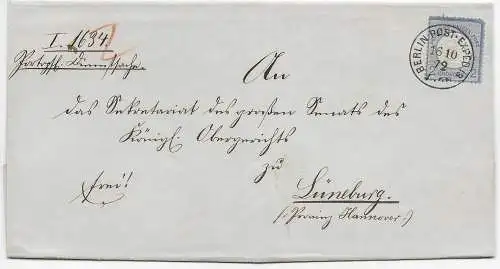 I. 1684.
Portopfl. Dienstsache.
BERLIN POST-EXPED. 8
16 10
72
An
das Sekretariat des großen Senats des
Königl. Obergerichts
zu
frei!
Lüneburg.
(: Provinz Hannover :)